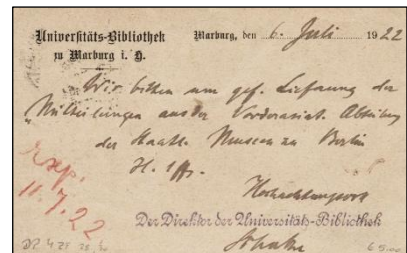 Universitäts-Bibliothek
zu Marburg i. H.
Marburg, den 6. Juli 1922
Wir bitten um gef. Lieferung der
"Mitteilungen aus der Vorderasiat. Abteilung
der Staatl. Museen zu Berlin
H. 1 ff.
Hochachtungsvoll
Der Direktor der Universitäts-Bibliothek
Exp.
11.7.22